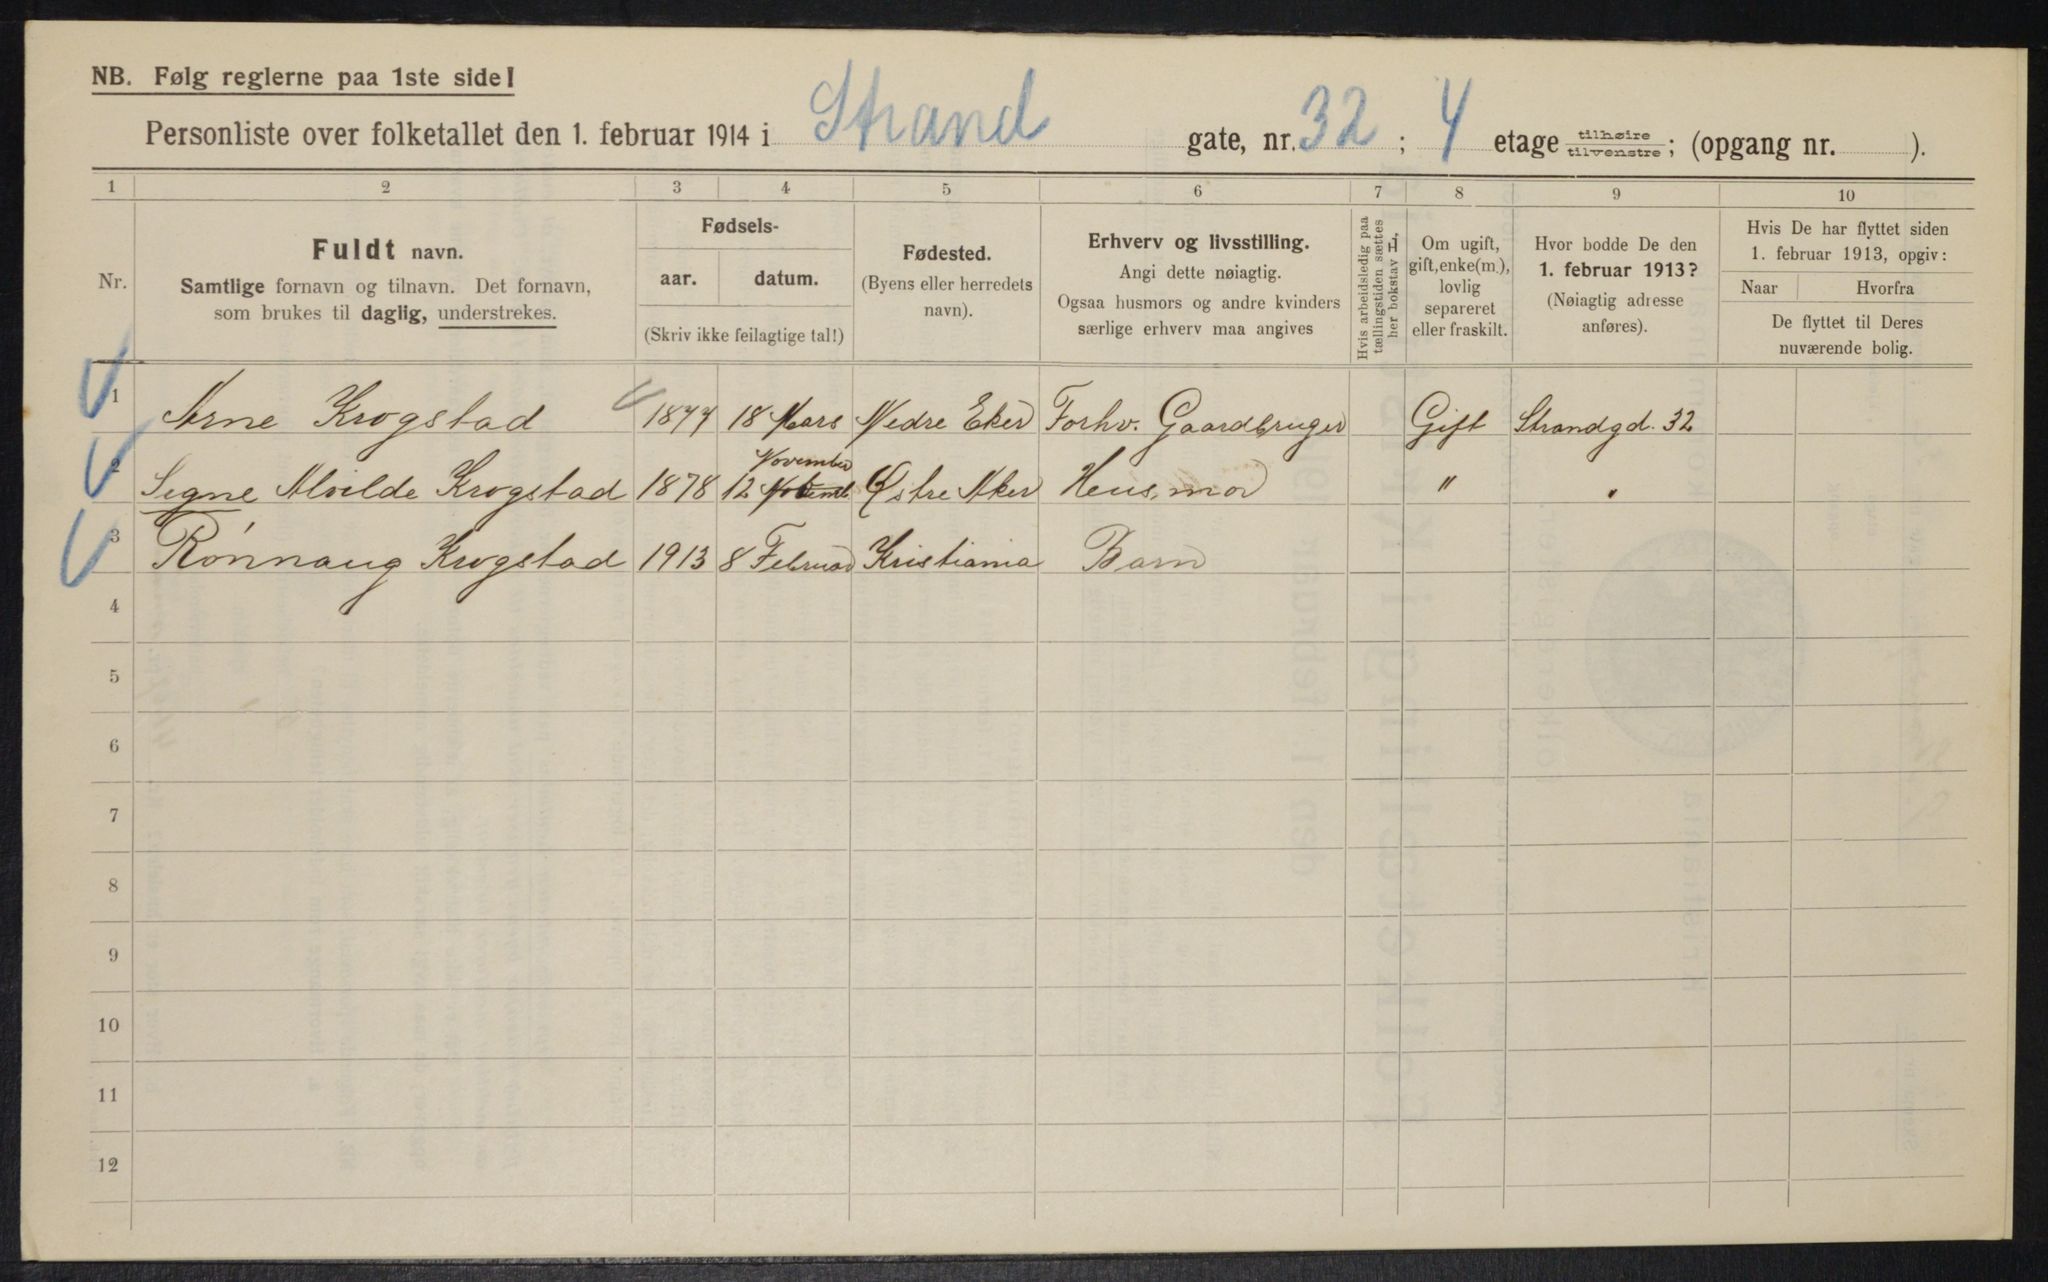 NB. Følg reglerne paa 1ste side!
Personliste over folketallet den 1. februar 1914 i Strand gate, nr. 32; 4 etage tilhøire tilvenstre; (opgang nr. ).
1 2 3 4 5 6 7 8 9 10
Nr.
Fuldt navn.
Samtlige fornavn og tilnavn. Det fornavn,
som brukes til daglig, understrekes.
Fødsels-
aar. datum.
(Skriv ikke feilagtige tal!)
Fødested.
(Byens eller herredets
navn).
Erhverv og livsstilling.
Angi dette nøiagtig.
Ogsaa husmors og andre kvinders
særlige erhverv maa angives
Hvis arbeidsledig paa
tællingstiden sættes
her bokstav L.
Om ugift,
gift, enke(m.),
lovlig
separeret
eller fraskilt.
Hvor bodde De den
1. februar 1913?
(Nøiagtig adresse
anføres).
Hvis De har flyttet siden
1. februar 1913, opgiv:
Naar Hvorfra
De flyttet til Deres
nuværende bolig.
1 Arne Krogstad 1877 18 Mars Nedre Eker Forhv. Gaardbruger Gift Strandgd. 32
November
2 Signe Alvilde Krogstad 1878 12 Østre Aker Hus,mor " "
3 Rónnaug Krogstad 1913 8 Februar Kristiania Barn
4
5
6
7
8
9
10
11
12